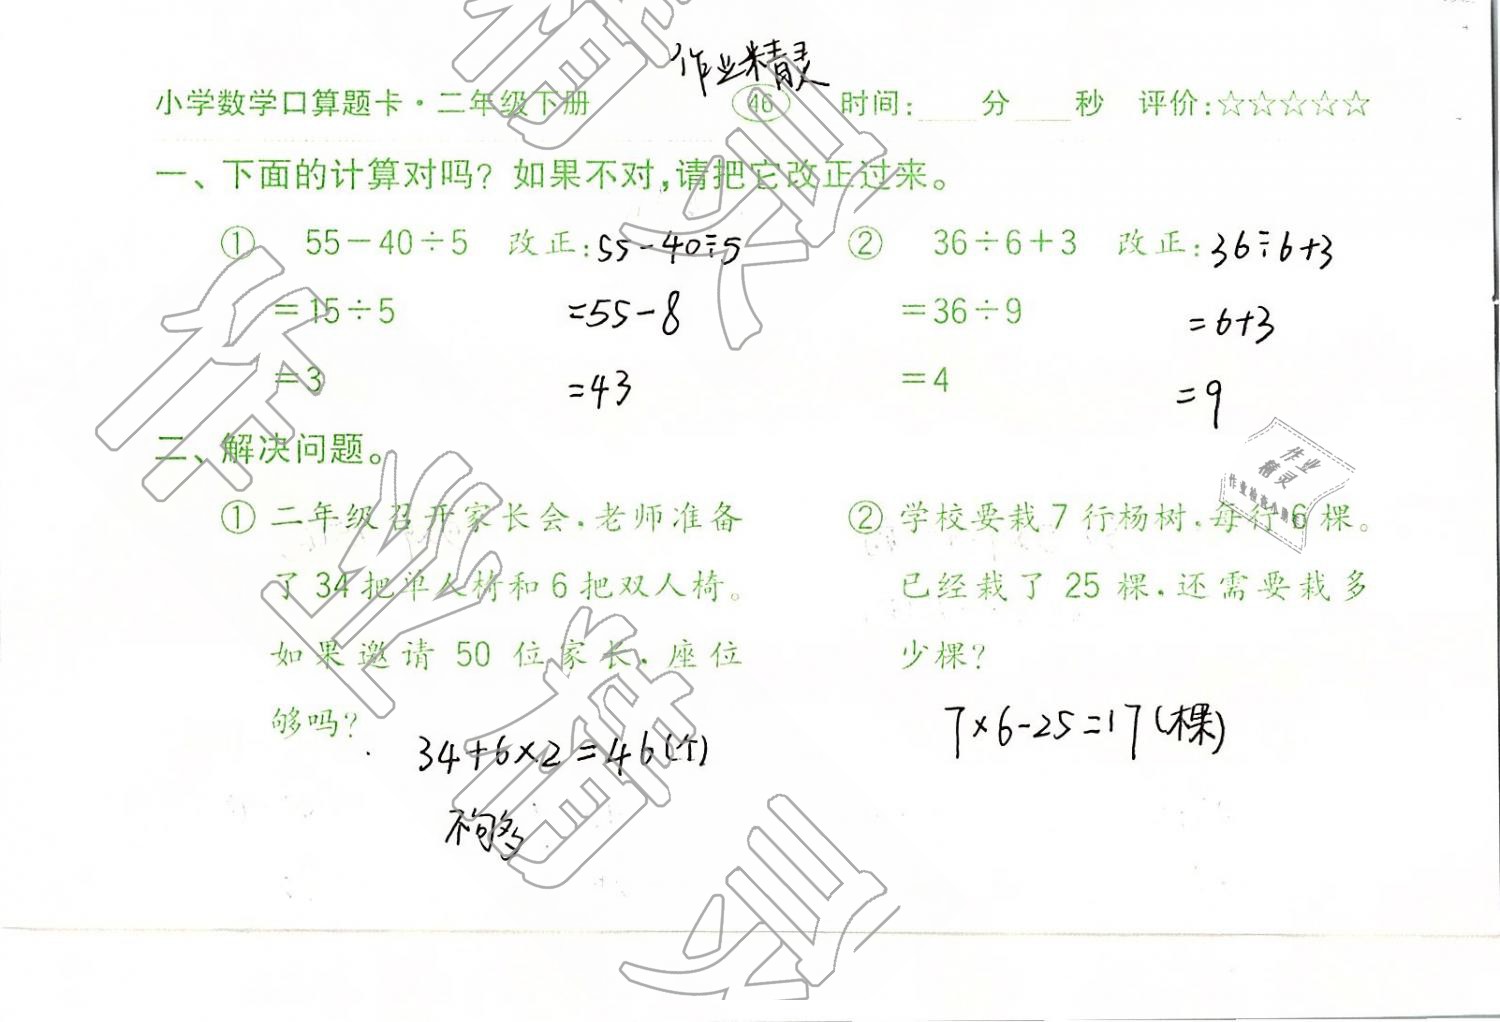 作业精灵
小学数学口算题卡·二年级下册 46 时间:____分____秒 评价:☆☆☆☆☆
一、下面的计算对吗?如果不对,请把它改正过来。
① 55-40÷5 改正:55-40÷5 ② 36÷6+3 改正:36÷6+3
=15÷5 =55-8 =36÷9 =6+3
=3 =43 =4 =9
二、解决问题。
① 二年级召开家长会,老师准备
了34把单人椅和6把双人椅。
如果邀请50位家长,座位
够吗?
34+6×2=46(个)
不够
② 学校要栽7行杨树,每行6棵。
已经栽了25棵,还需要栽多
少棵?
7×6-25=17(棵)
作业精灵
作业
精灵